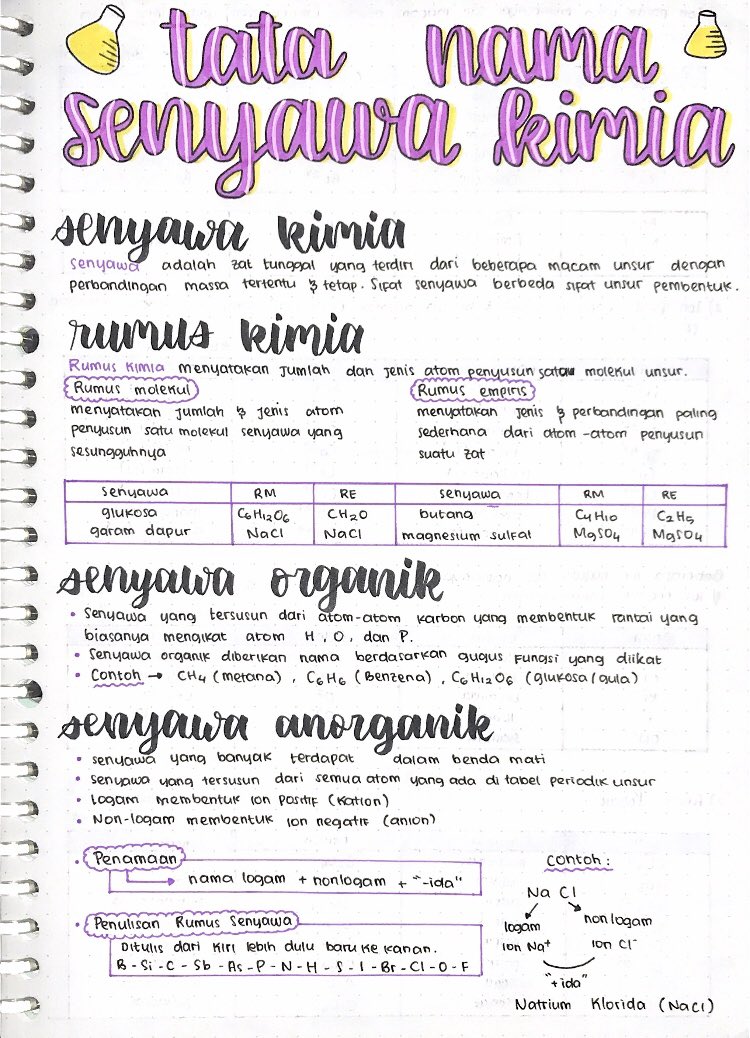 tata nama
senyawa kimia
senyawa kimia
senyawa adalah zat tunggal yang terdiri dari beberapa macam unsur dengan
perbandingan massa tertentu & tetap. Sifat senyawa berbeda sifat unsur pembentuk.
rumus kimia
Rumus Kimia menyatakan jumlah dan jenis atom penyusun satau molekul unsur.
Rumus molekul
menyatakan jumlah & jenis atom
penyusun satu molekul senyawa yang
sesungguhnya
Rumus empiris
menyatakan jenis & perbandingan paling
sederhana dari atom-atom penyusun
suatu zat
senyawa RM RE senyawa RM RE
glukosa C6H12O6 CH2O butana C4H10 C2H5
garam dapur NaCl NaCl magnesium sulfat MgSO4 MgSO4
senyawa organik
• Senyawa yang tersusun dari atom-atom karbon yang membentuk rantai yang
biasanya mengikat atom H, O, dan P.
• Senyawa organik diberikan nama berdasarkan gugus fungsi yang diikat
• Contoh → CH4 (metana), C6H6 (Benzena), C6H12O6 (glukosa/gula)
senyawa anorganik
• senyawa yang banyak terdapat dalam benda mati
• senyawa yang tersusun dari semua atom yang ada di tabel periodik unsur
• Logam membentuk ion positif (kation)
• Non-logam membentuk ion negatif (anion)
• Penamaan
nama logam + nonlogam + "-ida"
• Penulisan Rumus Senyawa
Ditulis dari kiri lebih dulu baru ke kanan.
B - Si - C - Sb - As - P - N - H - S - I - Br - Cl - O - F
contoh :
Na Cl
logam non logam
ion Na+ ion Cl-
"+ida"
Natrium Klorida (NaCl)